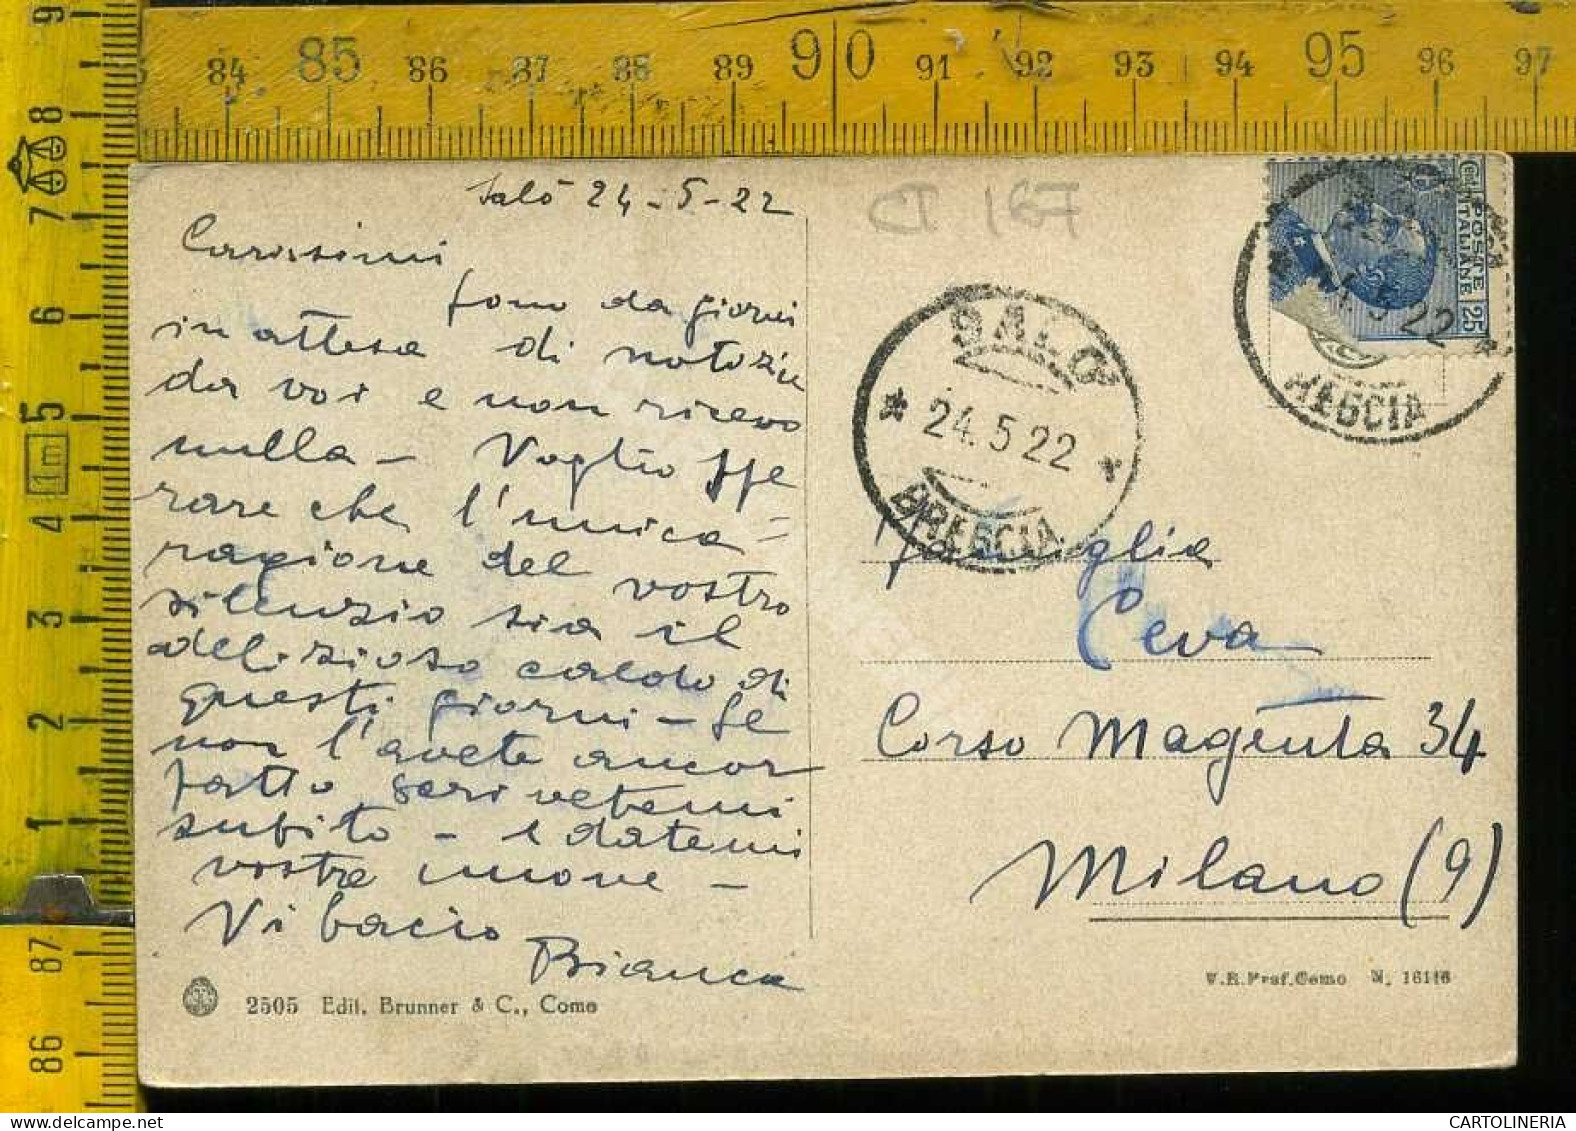 84 85 86 87 88 89 90 91 92 93 94 95 96 97
9
8
7
6
5
1m
4
3
2
1
87
86
Salò 24-5-22
CT 167
Carissimi
sono da giorni
in attesa di notizie
da voi e non ricevo
nulla - Voglio spe
rare che l'unica -
ragione del vostro
silenzio sia il
delizioso caldo di
questi giorni - Se
non l'avete ancor
fatto scrivetemi
subito - e datemi
vostre nuove -
Vi bacio
Bianca
2505 Edit. Brunner & C., Como
POSTE
ITALIANE
25
24.5.22
BRESCIA
SALO
24.5.22
BRESCIA
Famiglia
Ceva
Corso Magenta 34
Milano (9)
V.R.Pref.Como N. 16116
CARTOLINERIA